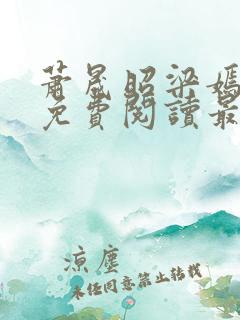 蕭晟昭梁嫣
免費閱讀最
涼塵
未經同意禁止轉載